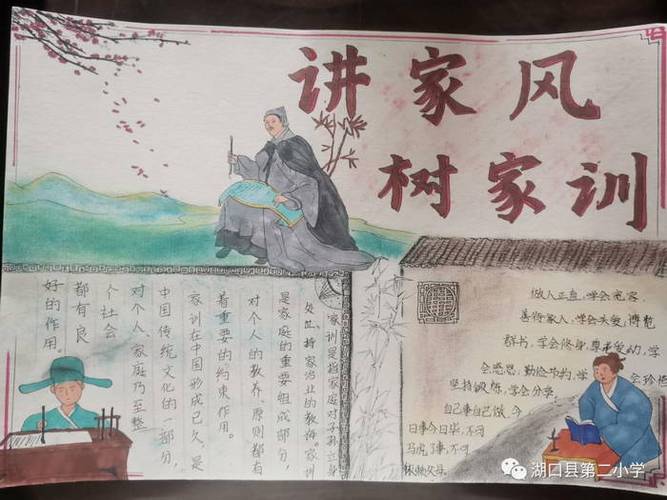 讲家风
树家训
家训是指家庭对子孙立身
处世、持家治业的教诲。家训
是家庭的重要组成部分，
对个人的教养、原则都有
着重要的约束作用。
家训在中国形成已久，是
中国传统文化的一部分，
对个人、家庭乃至整
个社会
都有良
好的作用。
做人正直，学会宽容
善待家人，学会关爱，博览
群书，学会修身，尊老爱幼，学
会感恩，勤俭节约，学会珍惜
坚持锻炼，学会分享，
自己事自己做，今
日事今日毕，不可
马虎了事，不可
依赖父母。
湖口县第二小学